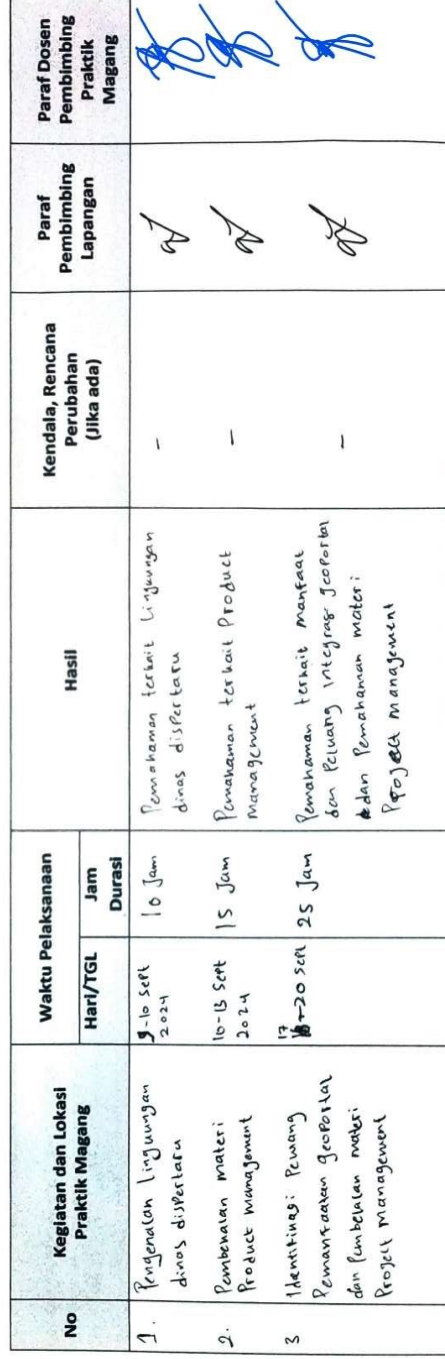 No
Kegiatan dan Lokasi
Praktik Magang
Waktu Pelaksanaan
Hari/TGL
Jam
Durasi
Hasil
Kendala, Rencana
Perubahan
(Jika ada)
Paraf
Pembimbing
Lapangan
Paraf Dosen
Pembimbing
Praktik
Magang
1.
Pengenalan lingkungan
dinas dispertaru
9-10 Sept
2024
10 Jam
Pemahaman terkait Lingkungan
dinas dispertaru
-
2.
Pembekalan materi
Product management
10-13 Sept
2024
15 Jam
Pemahaman terkait Product
management
-
3
Identifikasi Peluang
Pemanfaatan geoportal
dan Pembekalan materi
Project management
17
-20 Sept
25 Jam
Pemahaman terkait manfaat
dan Peluang integrasi geoportal
dan Pemahaman materi
Project management
-